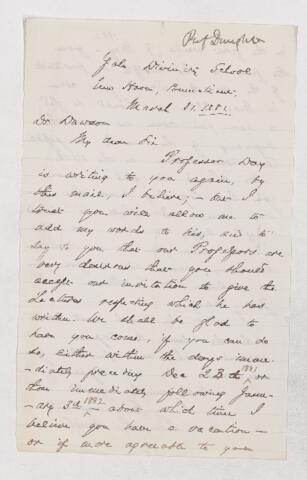 Prof Dwight
Yale Divinity School
New Haven, Connecticut,
March 31. 1881.
Dr. Dawson
My dear Sir
Professor Day
is writing to you again, by
this mail, I believe; - but I
trust you will allow me to
add my words to his, and to
say to you that our Professors are
very desirous that you should
accept our invitation to give the
Lectures respecting which he has
written. We shall be glad to
have you come, if you can do
so, either within the days imme-
-diately preceding Dec 23th 1881 or
those immediately following Janu-
-ary 3th 1882 - about which time I
believe you have a vacation -
or if more agreeable to you